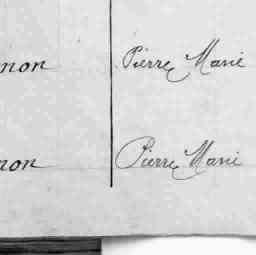 non Pierre Marie
non Pierre Marie